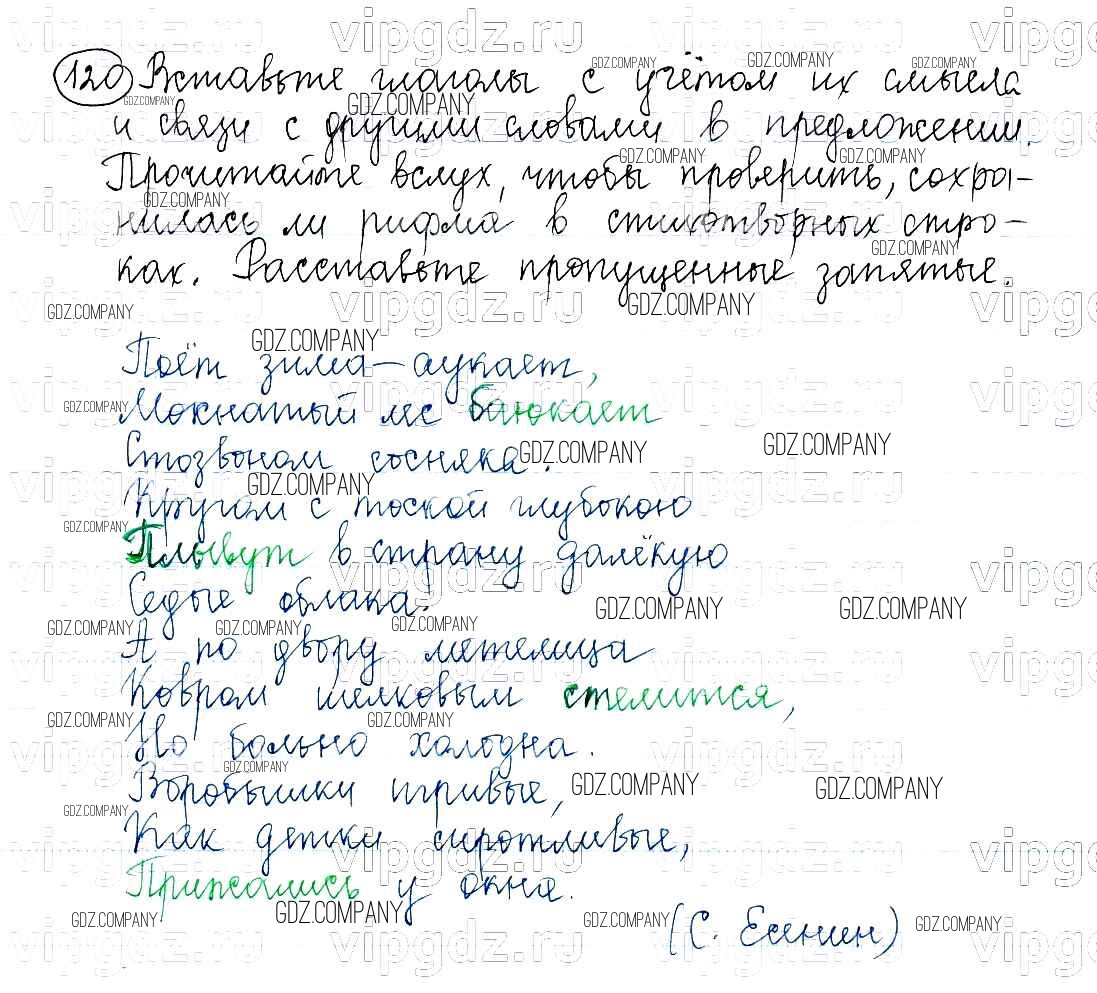 120 Вставьте глаголы с учётом их смысла
и связи с другими словами в предложении.
Прочитайте вслух, чтобы проверить, сохра-
нилась ли рифма в стихотворных стро-
ках. Расставьте пропущенные запятые.
Поёт зима – аукает,
Мохнатый лес баюкает
Стозвоном сосняка.
Кругом с тоской глубокою
Плывут в страну далёкую
Седые облака.
А по двору метелица
Ковром шелковым стелится,
Но больно холодна.
Воробышки игривые,
Как детки сиротливые,
Прижались у окна.
(С. Есенин)
vipgdz.ru
GDZ.COMPANY